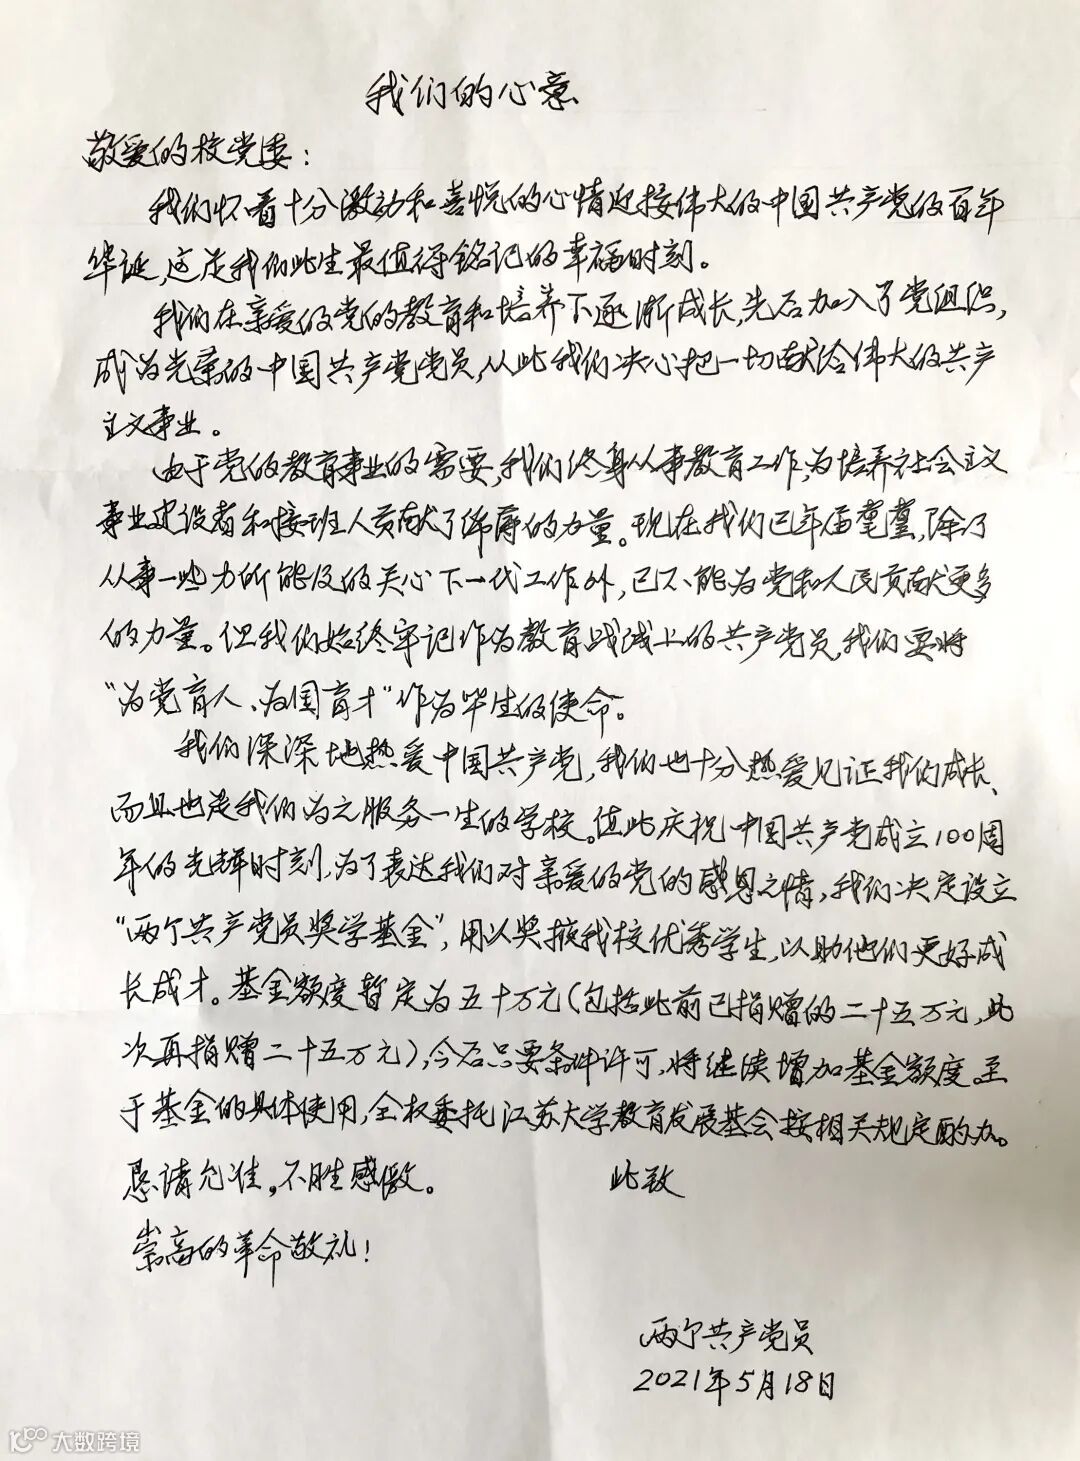 我们的心意
敬爱的校党委：
我们怀着十分激动和喜悦的心情迎接伟大的中国共产党的百年
华诞，这是我们此生最值得铭记的幸福时刻。
我们在亲爱的党的教育和培养下逐渐成长，先后加入了党组织，
成为光荣的中国共产党党员，从此我们决心把一切献给伟大的共产
主义事业。
由于党的教育事业的需要，我们终身从事教育工作，为培养社会主义
事业建设者和接班人贡献了绵薄的力量。现在我们已年届耄耋，除了
从事一些力所能及的关心下一代工作外，已不能为党和人民贡献更多
的力量。但我们始终牢记作为教育战线上的共产党员，我们要将
“为党育人、为国育才”作为毕生的使命。
我们深深地热爱中国共产党，我们也十分热爱见证我们成长、
而且也是我们为之服务一生的学校。值此庆祝中国共产党成立100周
年的光辉时刻，为了表达我们对亲爱的党的感恩之情，我们决定设立
“两个共产党员奖学基金”，用以奖掖我校优秀学生，以助他们更好成
长成才。基金额度暂定为五十万元（包括此前已捐赠的二十五万元，此
次再捐赠二十五万元），今后只要条件许可，将继续增加基金额度。至
于基金的具体使用，全权委托江苏大学教育发展基会按相关规定酌办。
恳请允准，不胜感激。 此致
崇高的革命敬礼！
两个共产党员
2021年5月18日
大数跨境